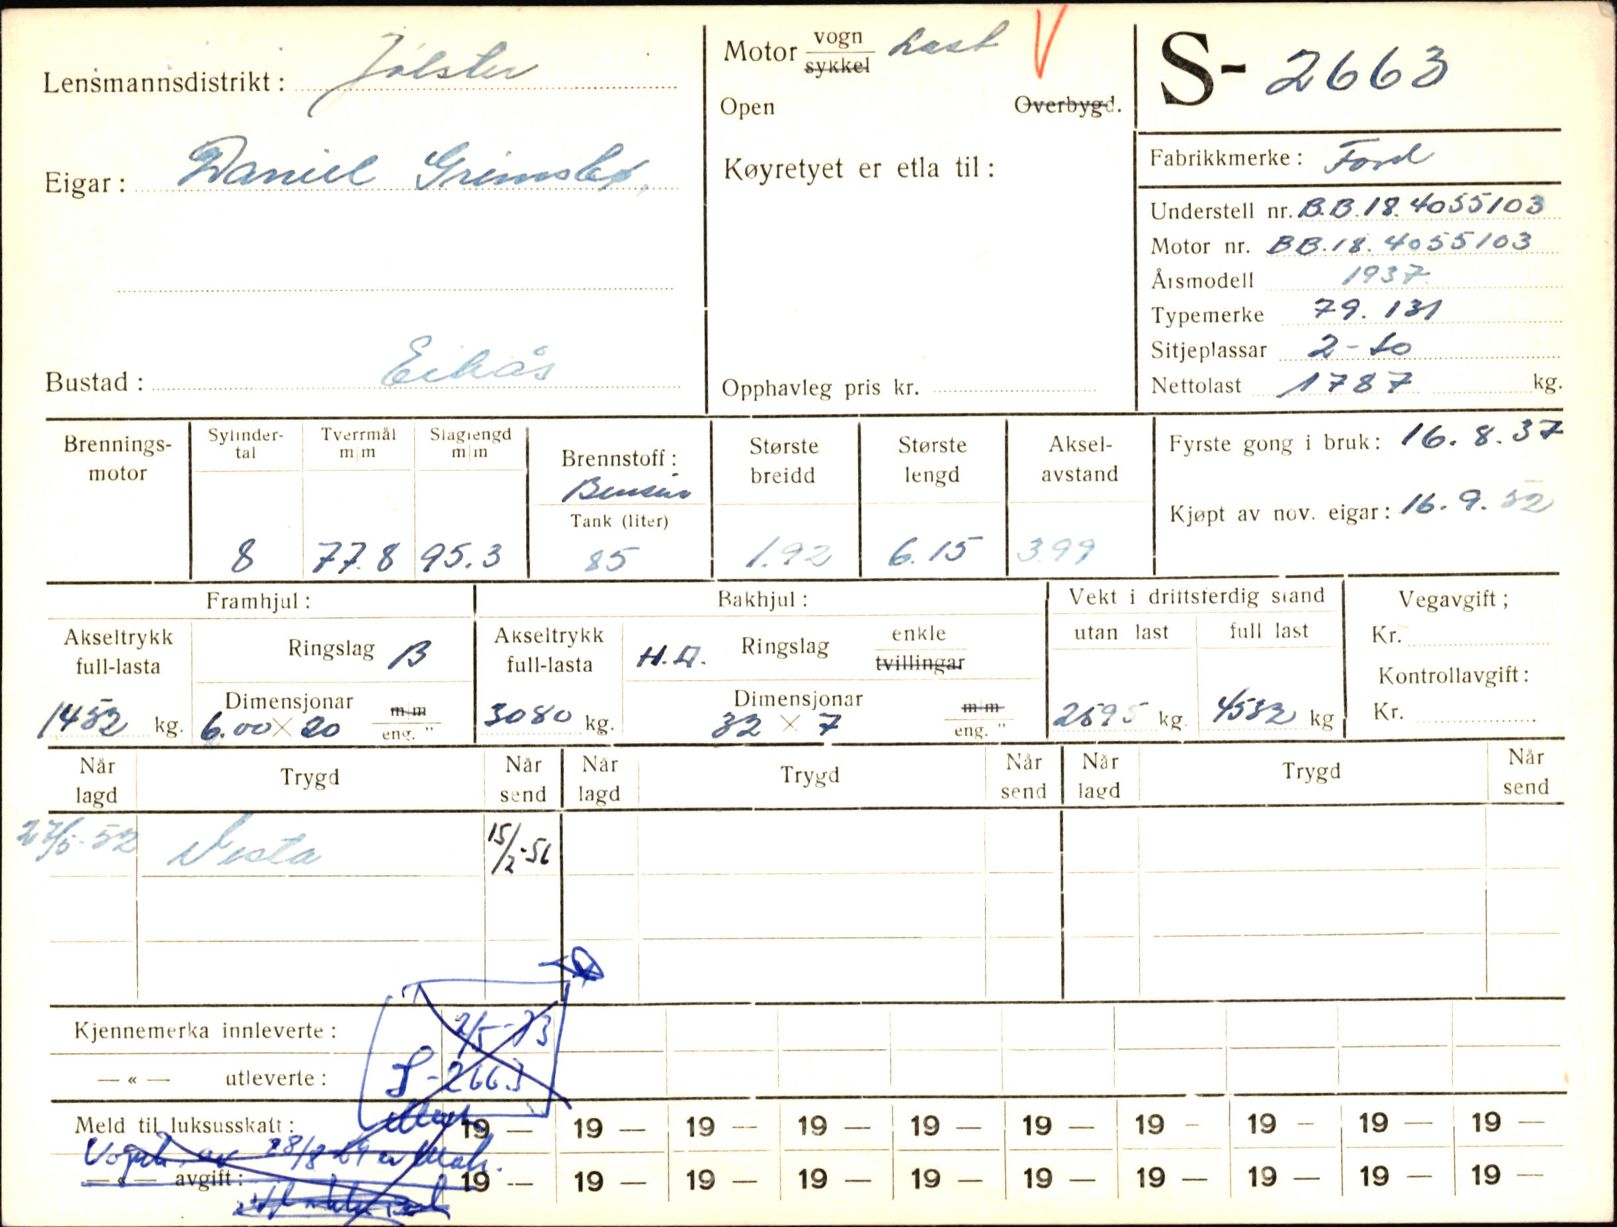 Lensmannsdistrikt: Jølster
Motor vogn sykkel Last V
Open Overbygd.
S- 2663
Eigar: Daniel Grimsbø,
Køyretyet er etla til:
Fabrikkmerke: Ford
Understell nr. B.B.18.4055103
Motor nr. BB.18.4055103
Årsmodell 1937
Typemerke 79. 131
Sitjeplassar 2-to
Nettolast 1787 kg.
Bustad: Eikås
Opphavleg pris kr.
Brennings-motor
Sylindertal 8
Tverrmål m|m 77.8
Slaglengd m|m 95.3
Brennstoff: Bensin
Tank (liter) 85
Største breidd 1.92
Største lengd 6.15
Aksel-avstand 3.99
Fyrste gong i bruk: 16.8.37
Kjøpt av nov. eigar: 16.9.52
Framhjul:
Akseltrykk full-lasta 1452 kg.
Ringslag B
Dimensjonar 6.00 × 20 m|m eng. "
Bakhjul:
Akseltrykk full-lasta 3080 kg.
H.D. Ringslag enkle tvillingar
Dimensjonar 32 × 7 m|m eng. "
Vekt i driftsferdig stand
utan last 2595 kg.
full last 4532 kg
Vegavgift;
Kr.
Kontrollavgift:
Kr.
Når lagd Trygd Når send Når lagd Trygd Når send Når lagd Trygd Når send
27/5-52 Vesta 15/2-56
Kjennemerka innleverte: 2/5-73
— « — utleverte: S-2663
Meld til luksusskatt: 19 — 19 — 19 — 19 — 19 — 19 — 19 — 19 — 19 — 19 —
28/8
— « — avgift: 19 — 19 — 19 — 19 — 19 — 19 — 19 — 19 — 19 — 19 —